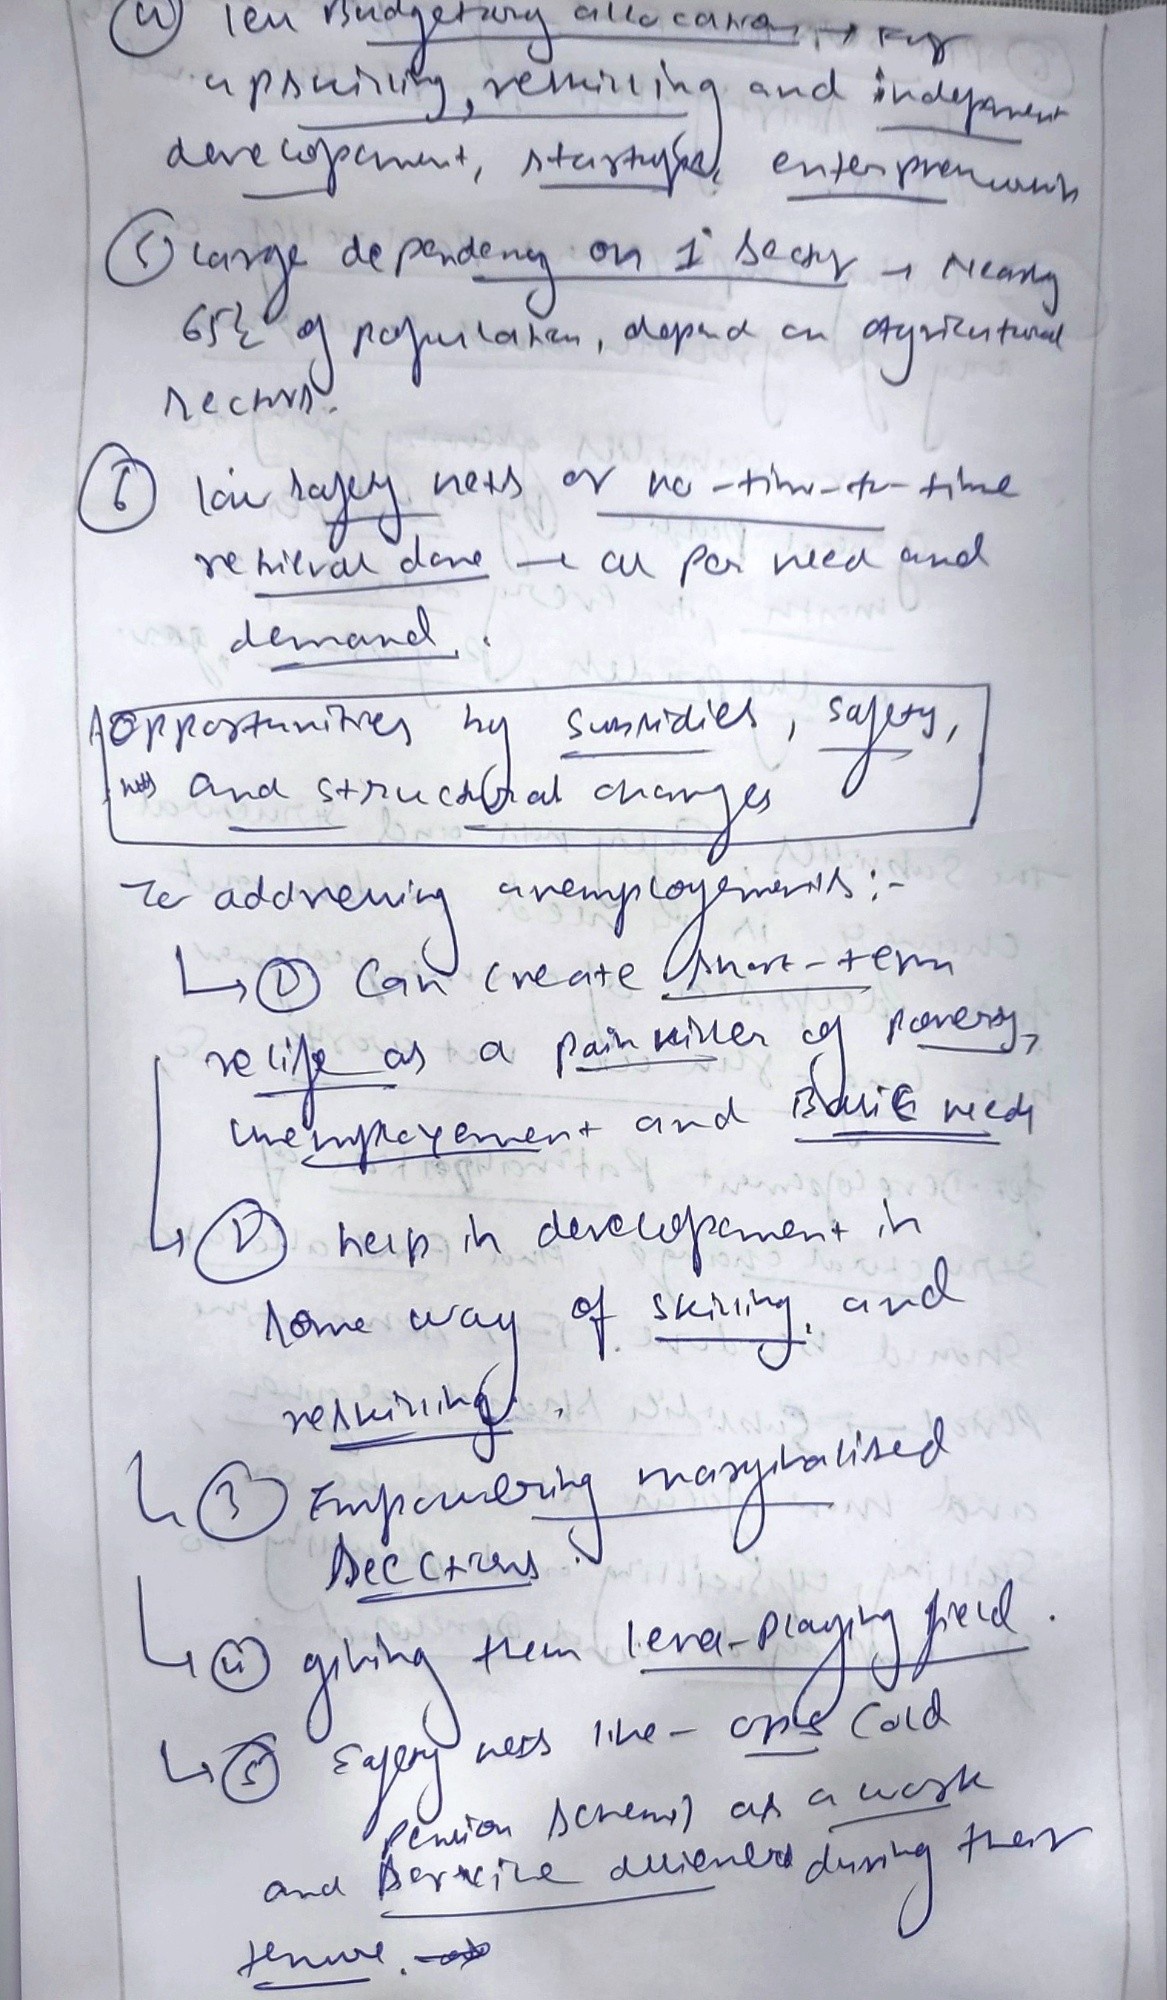 ④ less Budgetary allocation → For
upskilling, reskilling and independent
developement, startups, enterpreneurs
⑤ Large dependency on 1° sector → Nearly
65% of population, depend on Agricultural
sectors.
⑥ low safety nets or no-time-to-time
retrieval done → as per need and
demand.
Opportunities by subsidies, safety,
nets and structural changes
To addressing unemployements:-
↳ ① Can create short-term
relife as a pain killer of poverty,
unemployement and Basic needs
↳ ② help in developement in
some way of skilling, and
reskilling.
↳ ③ Empowering marginalised
sections.
↳ ④ giving them level-playing field.
↳ ⑤ Safety nets like - OPS (old
pension scheme) as a work
and service during their
tenure.